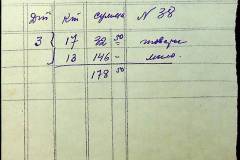 Дт Кт сумма N 38
3 { 17 32 50 товары
13 146 - мыло
178 50